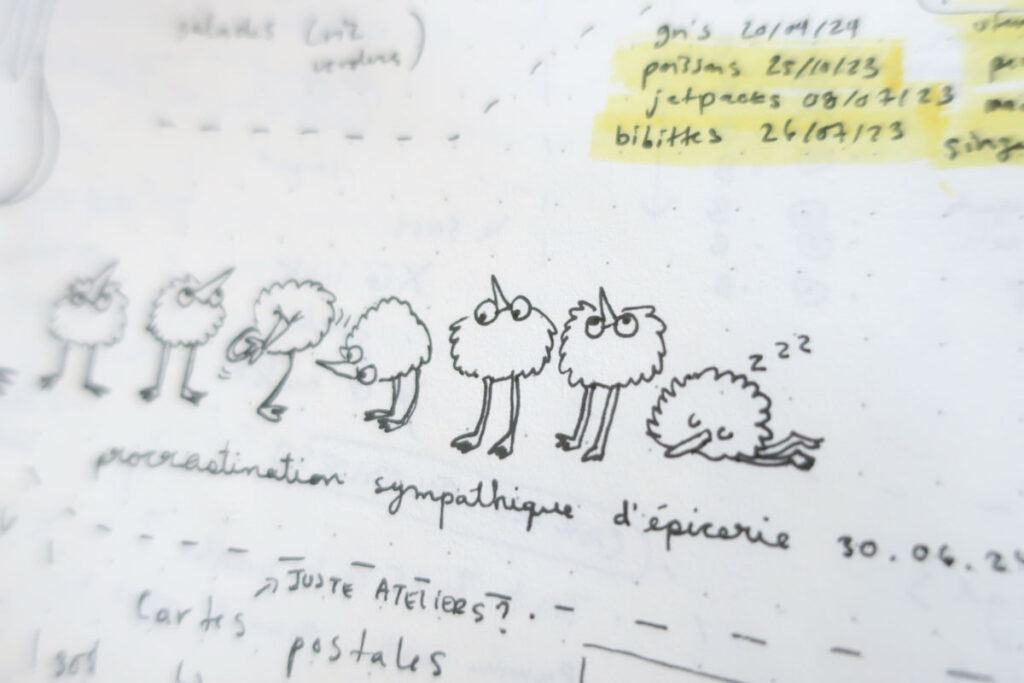 salades (mix
gris 20/04/24
poissons 25/10/23
jetpacks 08/07/23
bibittes 26/07/23
z z z
procrastination sympathique d'épicerie 30.06.24
→ JUSTE ATELIERS?
Cartes
postales